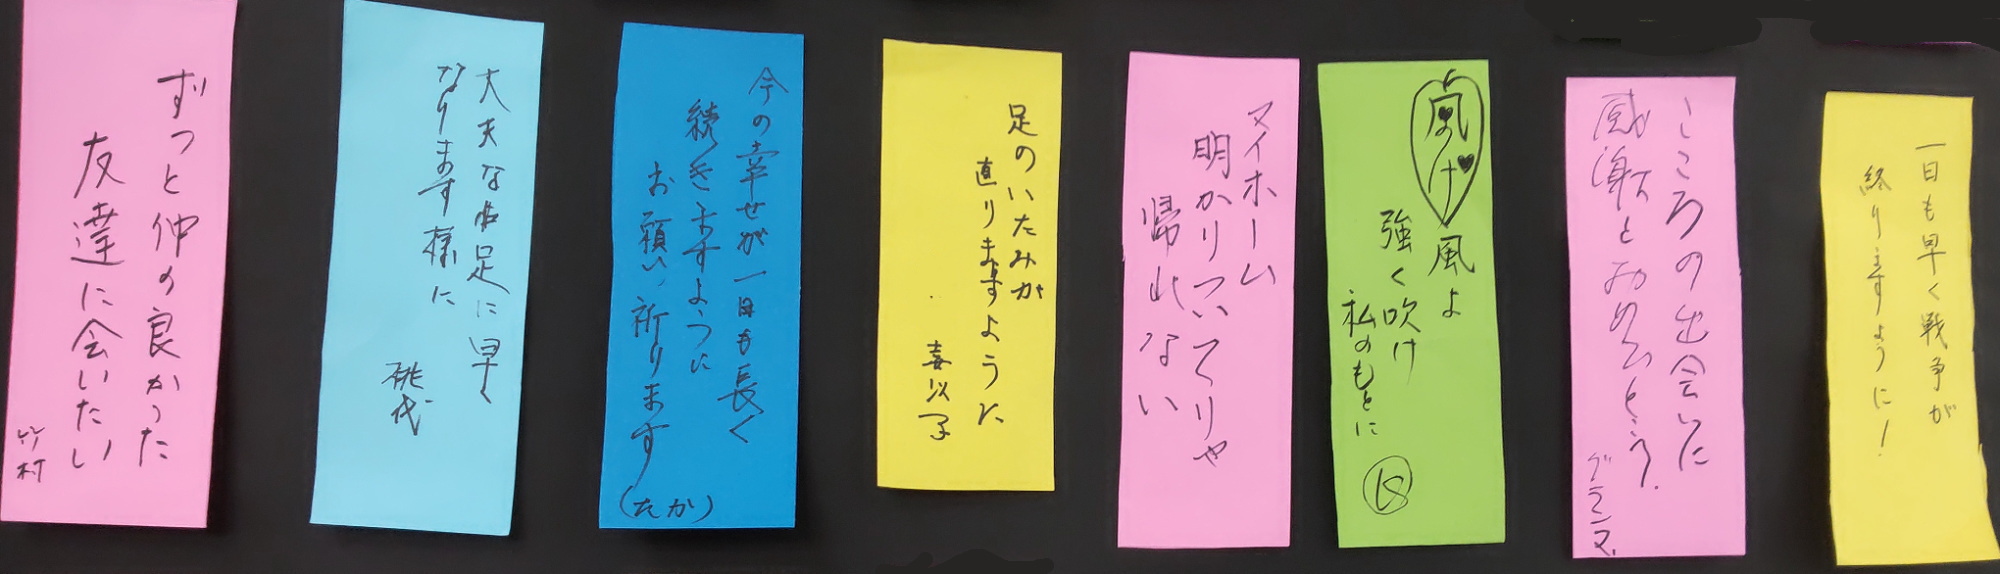 ずっと仲の良かった
友達に会いたい
竹村
大丈夫な足に早く
なります様に
桃代
今の幸せが一日も長く
続きますように
お願い祈ります
(たか)
足のいたみが
直りますように
喜以子
マイホーム
明かりついてりゃ
帰れない
風よ
強く吹け
私のもとに
こころの出会いに
感謝とおめでとう.
グランマ.
一日も早く戦争が
終りますように!